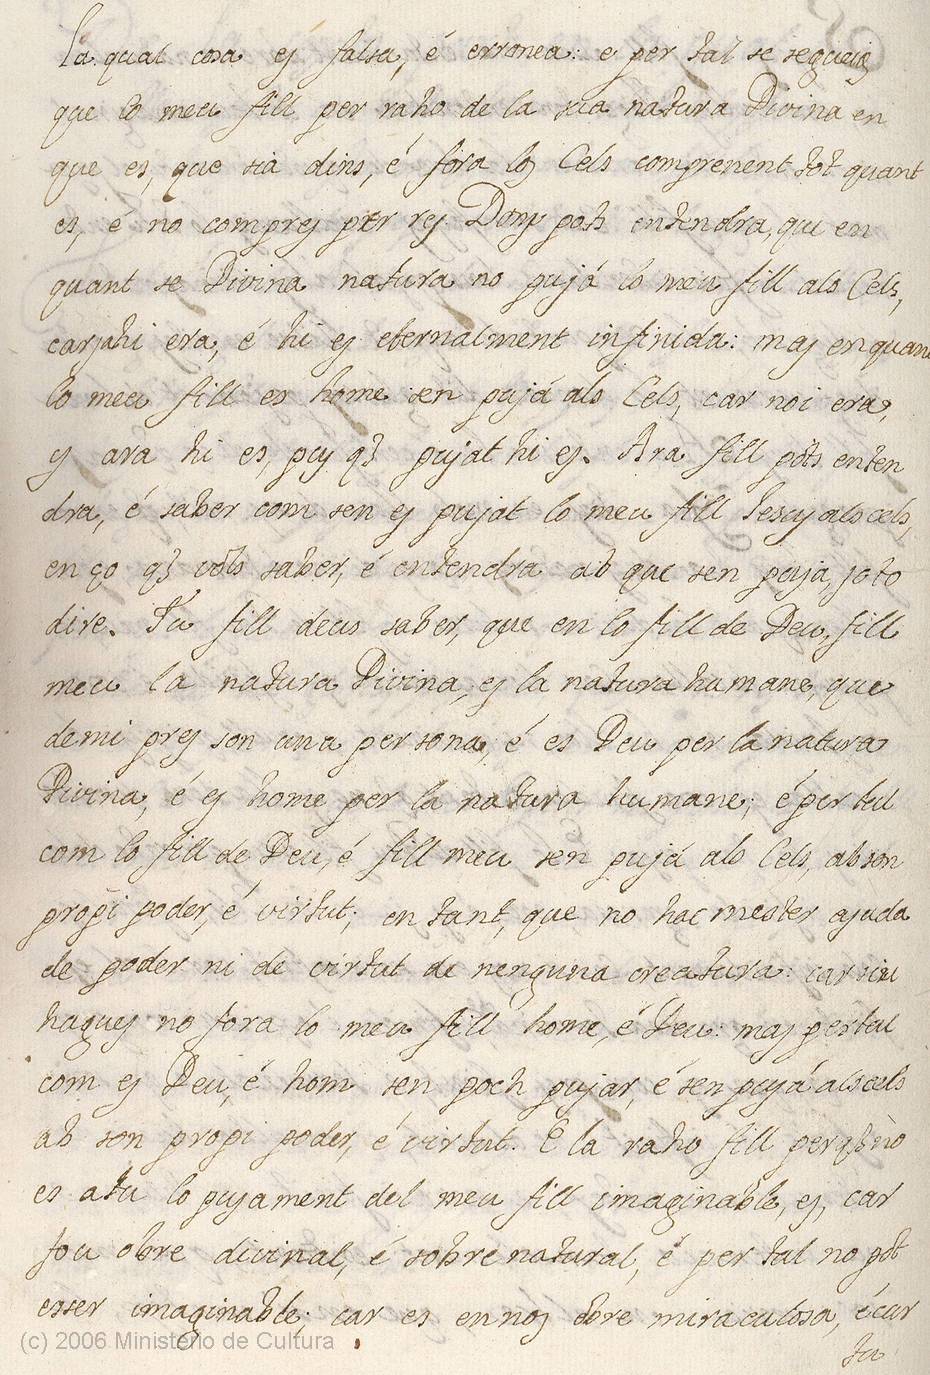 la qual cosa es falsa, é erronea: e per tal se segueis
que lo meu fill per raho de la sua natura Divina en
que es, que sia dins, é fora los Cels comprenent tot quant
es, é no compres per res Dong pots entendra, que en
quant se Divina natura no pujá lo meu fill als Cels,
car ja hi era, é hi es eternalment infinida: mas en quant
lo meu fill es home sen pujá als Cels, car noi era,
y ara hi es, puy q3 pujat hi es. Ara fill pots enten
dra, é saber com sen es pujat lo meu fill Jesus als cels,
en ço q3 vols saber, é entendra ab que sen puja, jo to
dire. Tu fill deus saber, que en lo fill de Deu, fill
meu la natura Divina, es la natura humane, que
de mi pres son una persona, é es Deu per la natura
Divina, é es home per la natura humane; é per tal
com lo fill de Deu, é fill meu sen pujá als Cels, ab son
propi poder, é virtut; en tant, que no hac mester ajuda
de poder ni de virtut de nenguna creatura: car siu
hagues no fora lo meu fill home, é Deu: mas per tal
com es Deu, é hom sen poch pujar, é sen pujá als cels
ab son propi poder, é virtut. E la raho fill per q3 no
es atu lo pujament del meu fill imaginable, es, car
fou obre divinal, é sobre natural, é per tal no pot
esser imaginable; car es en nos obre miraculosa, é car
tu
(c) 2006 Ministerio de Cultura